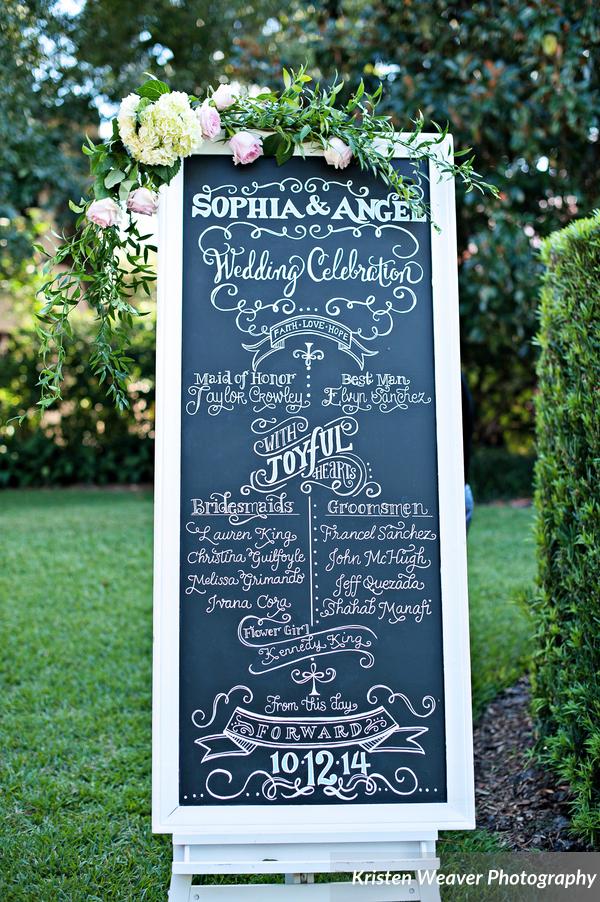 SOPHIA & ANGEL
Wedding Celebration
FAITH · LOVE · HOPE
Maid of Honor
Taylor Crowley
Best Man
Elvyn Sanchez
WITH
JOYFUL
HEARTS
Bridesmaids
Lauren King
Christina Guilfoyle
Melissa Grimando
Ivana Cora
Groomsmen
Francel Sanchez
John McHugh
Jeff Quezada
Shahab Manafi
Flower Girl
Kennedy King
From this day
FORWARD
10·12·14
Kristen Weaver Photography